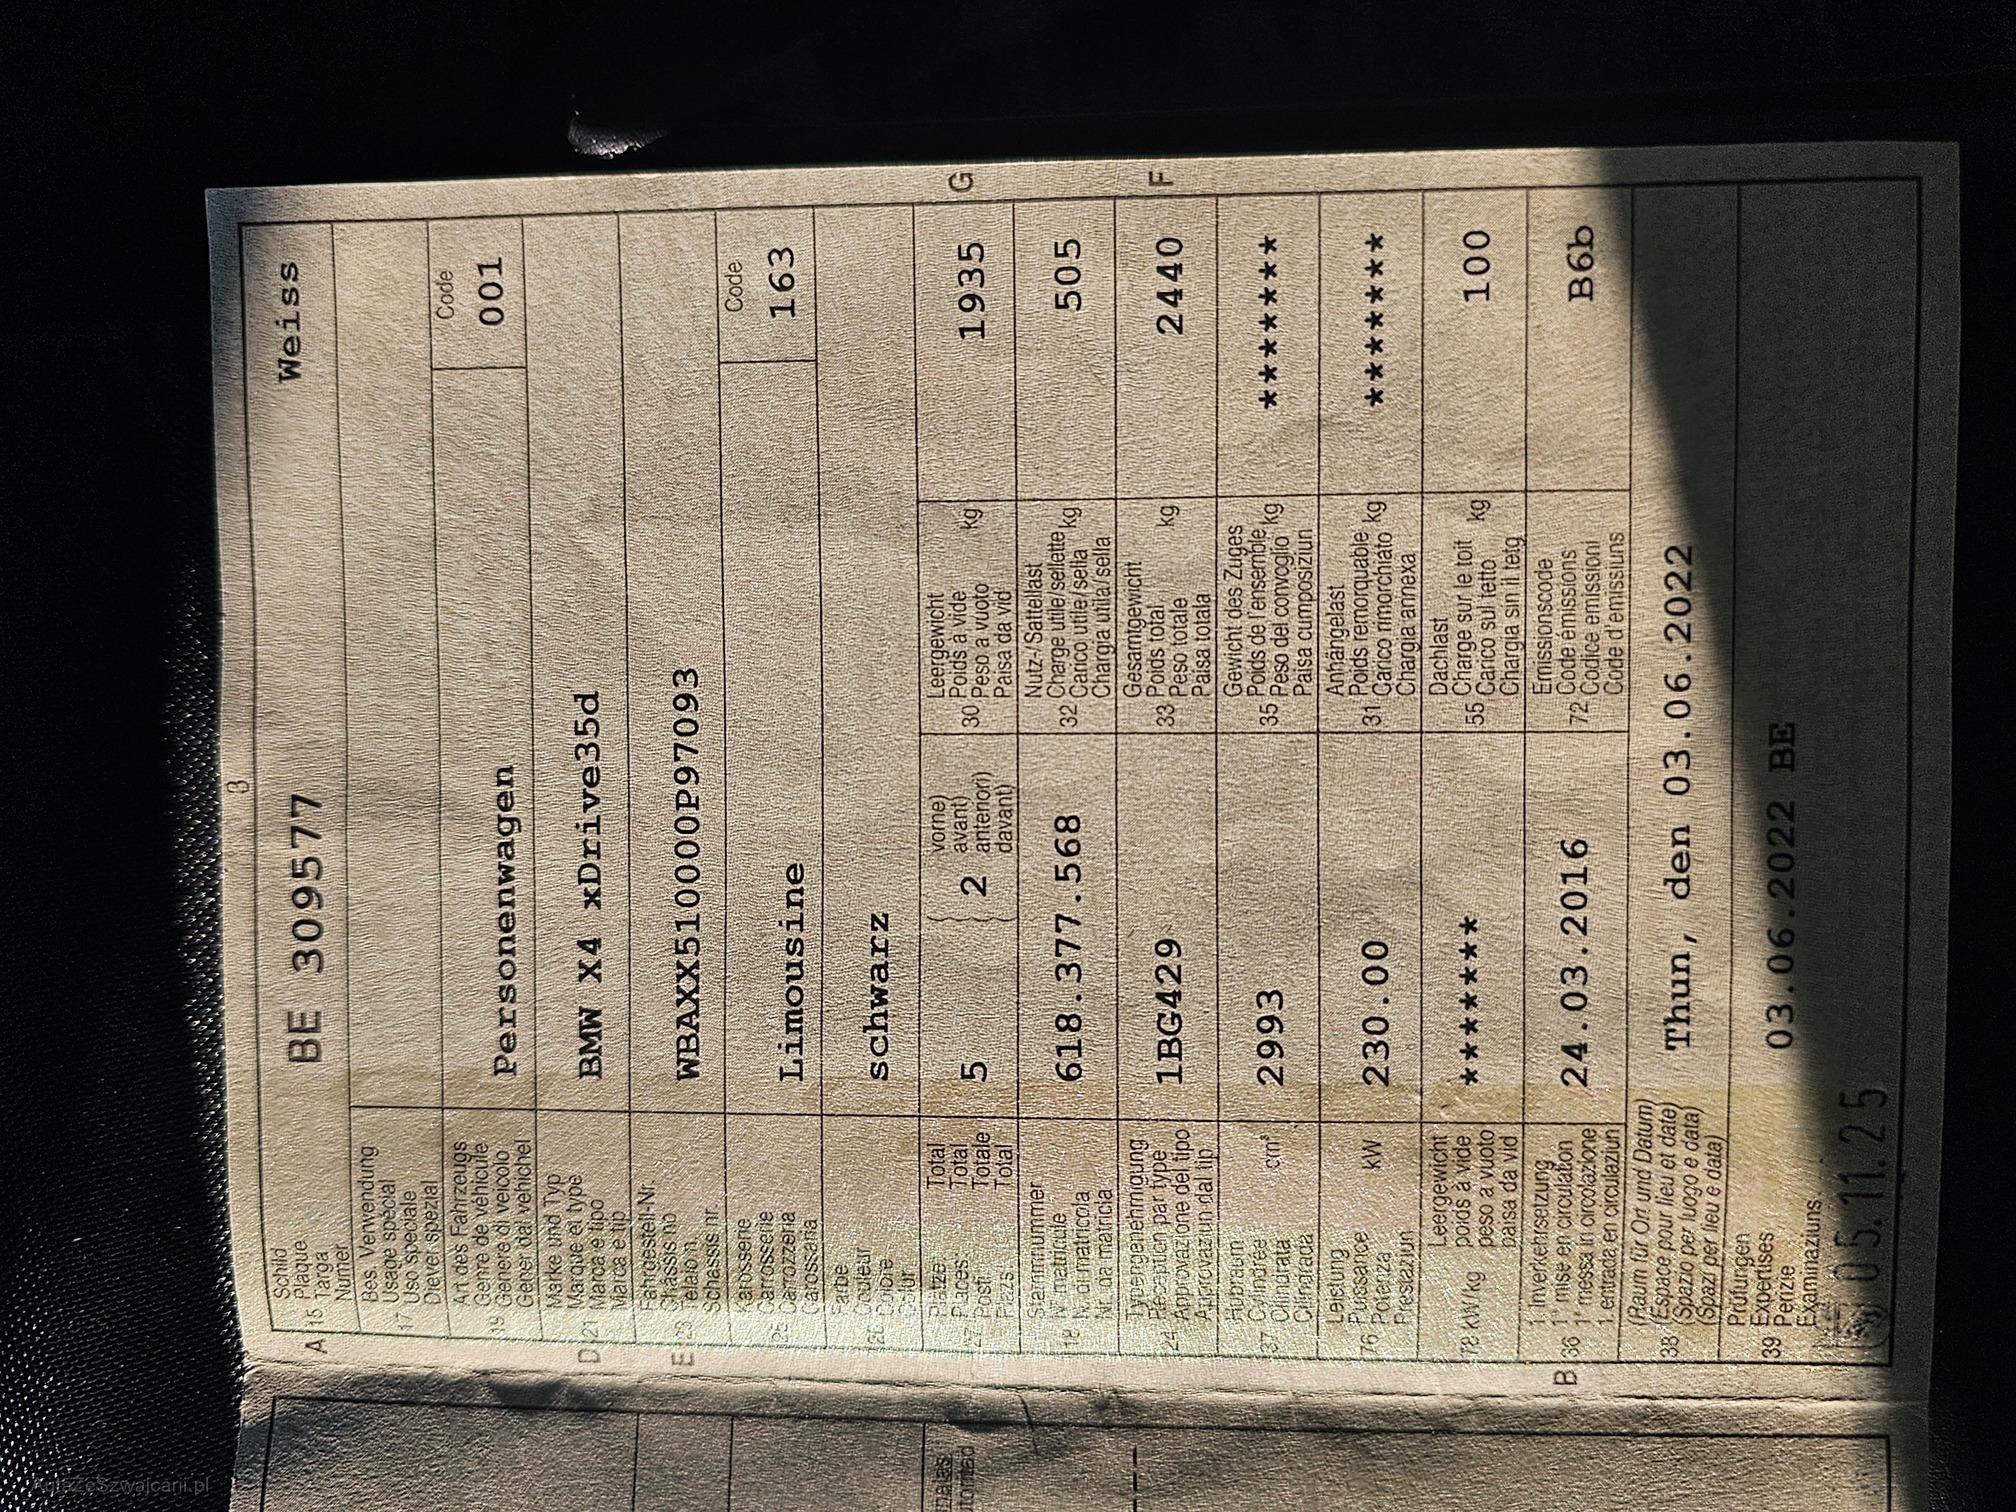 3
A 15 Schild
Plaque
Targa
Numer
BE 309577 Weiss
17 Bes. Verwendung
Usage spécial
Uso speciale
Diever spezial
19 Art des Fahrzeugs
Genre de véhicule
Genere di veicolo
Gener dal vehichel
Personenwagen
Code
001
D 21 Marke und Typ
Marque et type
Marca e tipo
Marca e tip
BMW X4 xDrive35d
E 23 Fahrgestell-Nr.
Châssis no
Telaio n.
Schassis nr.
WBAXX510000P97093
25 Karosserie
Carrosserie
Carrozzeria
Carossaria
Limousine
Code
163
26 Farbe
Couleur
Colore
Colur
schwarz
27 Plätze Total
Places Total
Posti Totale
Plazs Total
5
2
vorne)
avant)
anteriori)
davant)
30 Leergewicht
Poids à vide
Peso a vuoto
Paisa da vid
kg
1935
G
18 Stammnummer
N° matricule
N. di matricola
Nr. da matricla
618.377.568
32 Nutz-/Sattellast
Charge utile/sellette
Carico utile/sella
Chargia utila/sella
kg
505
24 Typengenehmigung
Réception par type
Approvazione del tipo
Approvaziun dal tip
1BG429
33 Gesamtgewicht
Poids total
Peso totale
Paisa totala
kg
2440
F
37 Hubraum
Cylindrée
Cilindrata
Cilindrada
cm³
2993
35 Gewicht des Zuges
Poids de l'ensemble
Peso del convoglio
Paisa cumposiziun
kg
********
76 Leistung
Puissance
Potenza
Prestaziun
kW
230.00
31 Anhängelast
Poids remorquable
Carico rimorchiato
Chargia annexa
kg
********
78 kW/kg
Leergewicht
poids à vide
peso a vuoto
paisa da vid
*******
55 Dachlast
Charge sur le toit
Carico sul tetto
Chargia sin il tetg
kg
100
B 36 1. Inverkehrsetzung
1re mise en circulation
1a messa in circolazione
1. entrada en circulaziun
24.03.2016
72 Emissionscode
Code émissions
Codice emissioni
Code d'emissiuns
B6b
38 (Raum für Ort und Datum)
(Espace pour lieu et date)
(Spazio per luogo e data)
(Spazi per lieu e data)
Thun, den 03.06.2022
39 Prüfungen
Expertises
Perizie
Examinaziuns
03.06.2022 BE
05.11.25
AutazeSzwajcarii.pl